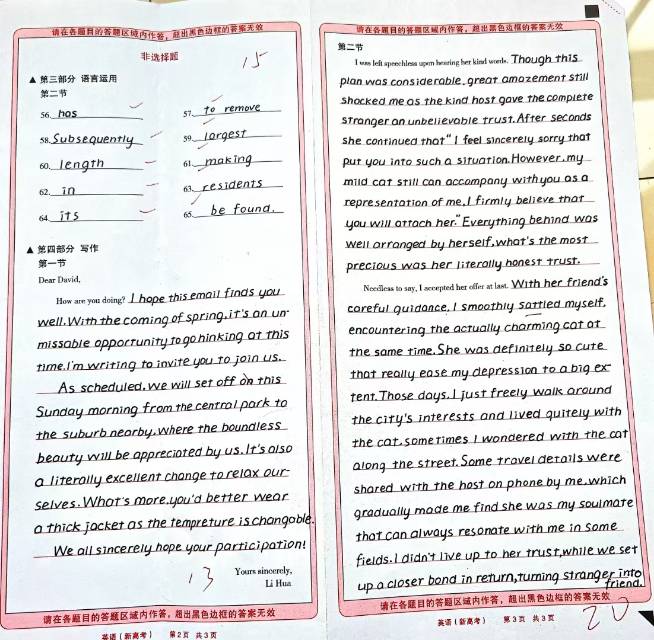 请在各题目的答题区域内作答，超出黑色边框的答案无效
非选择题
15
▲ 第三部分 语言运用
第二节
56. has 57. to remove
58. Subsequently 59. largest
60. length 61. making
62. in 63. residents
64. its 65. be found.
▲ 第四部分 写作
第一节
Dear David,
How are you doing? I hope this email finds you
well. With the coming of spring, it's an un-
missable opportunity to go hinking at this
time. I'm writing to invite you to join us.
As scheduled, we will set off on this
Sunday morning from the central park to
the suburb nearby, where the boundless
beauty will be appreciated by us. It's also
a literally excellent change to relax our-
selves. What's more, you'd better wear
a thick jacket as the tempreture is changable.
We all sincerely hope your participation!
13
Yours sincerely,
Li Hua
请在各题目的答题区域内作答，超出黑色边框的答案无效
英语（新高考） 第2页 共3页
请在各题目的答题区域内作答，超出黑色边框的答案无效
第二节
I was left speechless upon hearing her kind words. Though this
plan was considerable, great amazement still
shocked me as the kind host gave the complete
stranger an unbelievable trust. After seconds
she continued that "I feel sincerely sorry that
put you into such a situation. However, my
mild cat still can accompany with you as a
representation of me. I firmly believe that
you will attach her." Everything behind was
well arranged by herself, what's the most
precious was her literally honest trust.
Needless to say, I accepted her offer at last. With her friend's
careful guidance, I smoothly sattled myself,
encountering the actually charming cat at
the same time. She was definitely so cute
that really ease my depression to a big ex-
tent. Those days, I just freely walk around
the city's interests and lived quitely with
the cat, sometimes I wondered with the cat
along the street. Some travel details were
shared with the host on phone by me, which
gradually made me find she was my soulmate
that can always resonate with me in some
fields. I didn't live up to her trust, while we set
up a closer bond in return, turning stranger into
friend.
20
请在各题目的答题区域内作答，超出黑色边框的答案无效
英语（新高考） 第3页 共3页